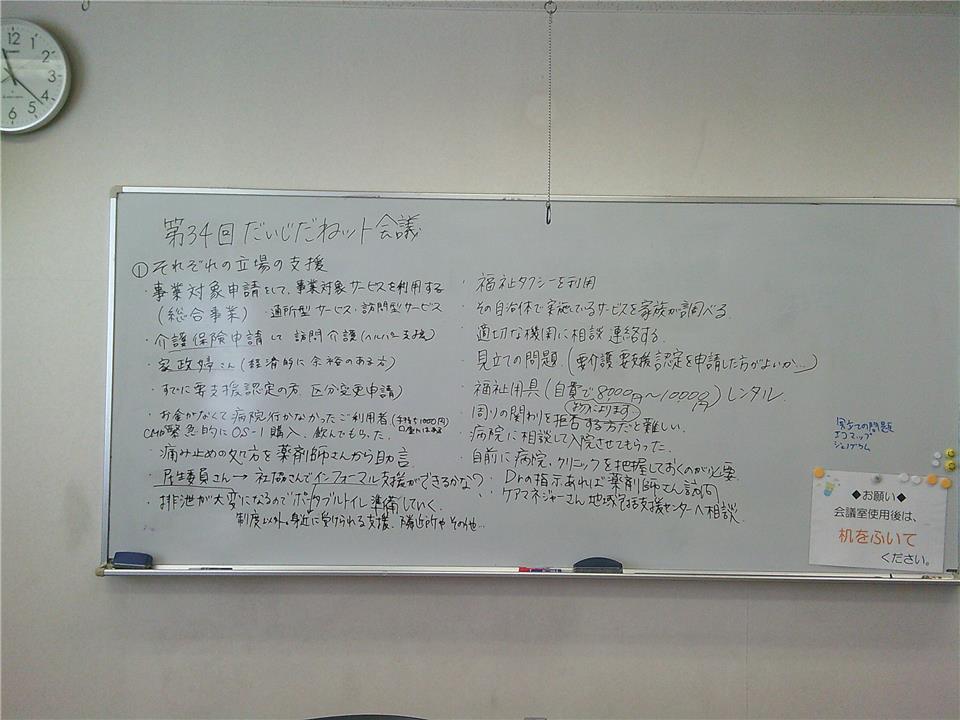 第34回だいじだねット会議
①それぞれの立場の支援
・事業対象申請をして、事業対象サービスを利用する
(総合事業) 通所型サービス・訪問型サービス
・介護保険申請して 訪問介護(ヘルパーによる支援)
・家政婦さん(経済的に余裕のある方)
・すでに要支援認定の方、区分変更申請)
・お金がなくて病院行かなかったご利用者(手持ち1000円
CMが緊急的にOS-1購入、飲んでもらった。
痛み止めの処方を薬剤師さんから助言
・民生委員さん→社協さんでインフォーマル支援ができるかな?
・排泄が大変になるのでポータブルトイレ準備していく。
制度以外、身近に受けられる支援、隣近所やその他…
・福祉タクシーを利用
・その自治体で実施しているサービスを家族が調べる。
・適切な機関に相談、連絡する。
・見立ての問題。(要介護・要支援認定を申請した方がよいか…)
・福祉用具(自費で8000円〜10000円)レンタル。
物によります
・周りの関わりを拒否する方だと難しい。
・病院に相談して入院させてもらった。
・自前に病院、クリニックを把握しておくのが必要
・Drの指示あれば薬剤師さん訪問
・ケアマネジャーさん 地域包括支援センターへ相談
の問題
エコマップ
ジェノグラム
◆お願い◆
会議室使用後は、
机をふいて
ください。
12 1 2 3 4 5 6